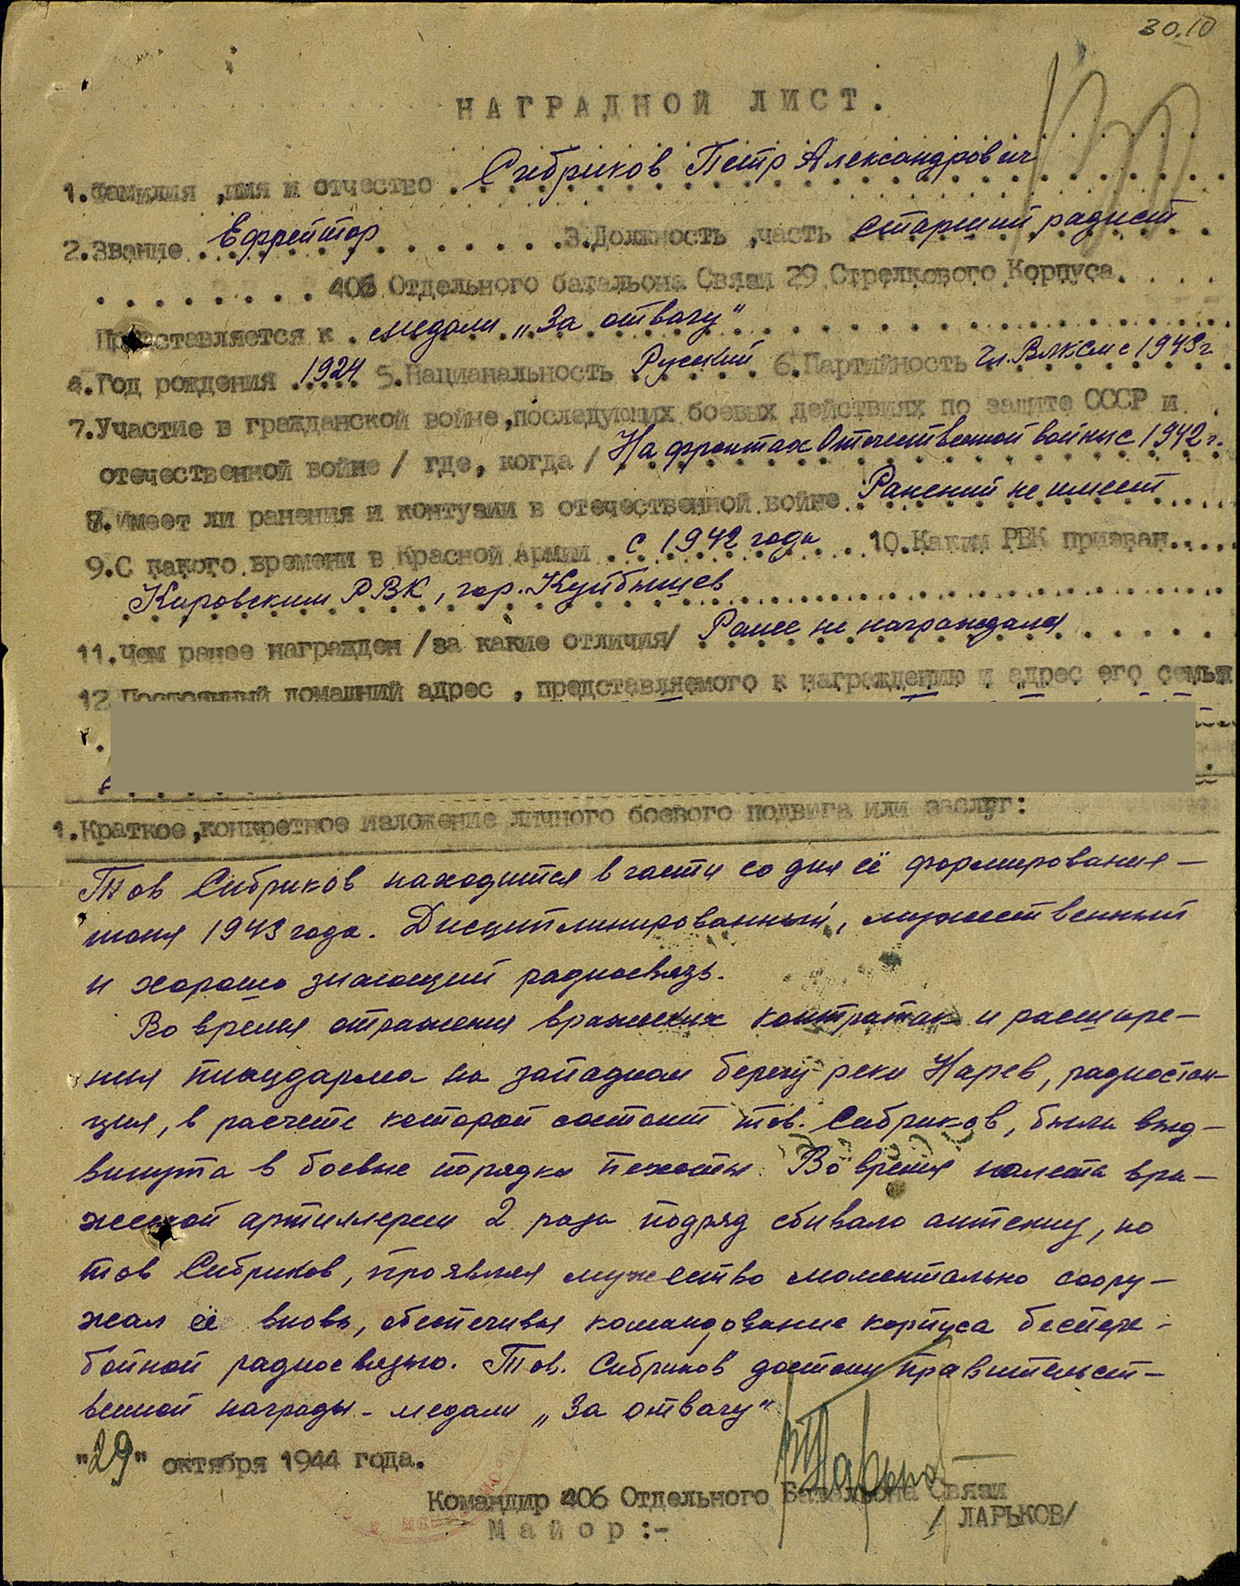 30.10
НАГРАДНОЙ ЛИСТ.
1.Фамилия ,имя и отчество . Сибриков Петр Александрович
2.Звание Ефрейтор 3.Должность ,часть старший радист
406 Отдельного батальона Связи 29 Стрелкового Корпуса.
Представляется к . медали „За отвагу"
4.Год рождения 1924 5.Национальность Русский 6.Партийность Чл.ВЛКСМ с 1943г
7.Участие в гражданской войне,последующих боевых действиях по защите СССР и
отечественной войне / где, когда / На фронтах Отечественной войны с 1942 г.
8.Имеет ли ранения и контузии в отечественной войне Ранений не имеет
9.С какого времени в Красной Армии с 1942 года 10.Каким РВК призван.
Кировским РВК, гор. Куйбышев
11.Чем ранее награжден /за какие отличия/ Ранее не награждался
12.Постоянный домашний адрес , представляемого к награждению и адрес его семьи
1.Краткое,конкретное изложение личного боевого подвига или заслуг:
Тов Сибриков находится в части со дня её формирования –
июня 1943 года. Дисциплинированный, мужественный
и хорошо знающий радиосвязь.
Во время отражения вражеских контратак и расшире–
ния плацдарма на западном берегу реки Нарев, радиостан–
ция, в расчете которой состоит тов. Сибриков, была выд–
винута в боевые порядки пехоты. Во время налета вра–
жеской артиллерии 2 раза подряд сбивало антенну, но
тов Сибриков, проявляя мужество моментально соору–
жал её вновь, обеспечивая командование корпуса беспере–
бойной радиосвязью. Тов. Сибриков достоин правительст–
венной награды – медали „За отвагу"
"29" октября 1944 года.
Командир 406 Отдельного Батальона Связи
Майор:- / ЛАРЬКОВ/